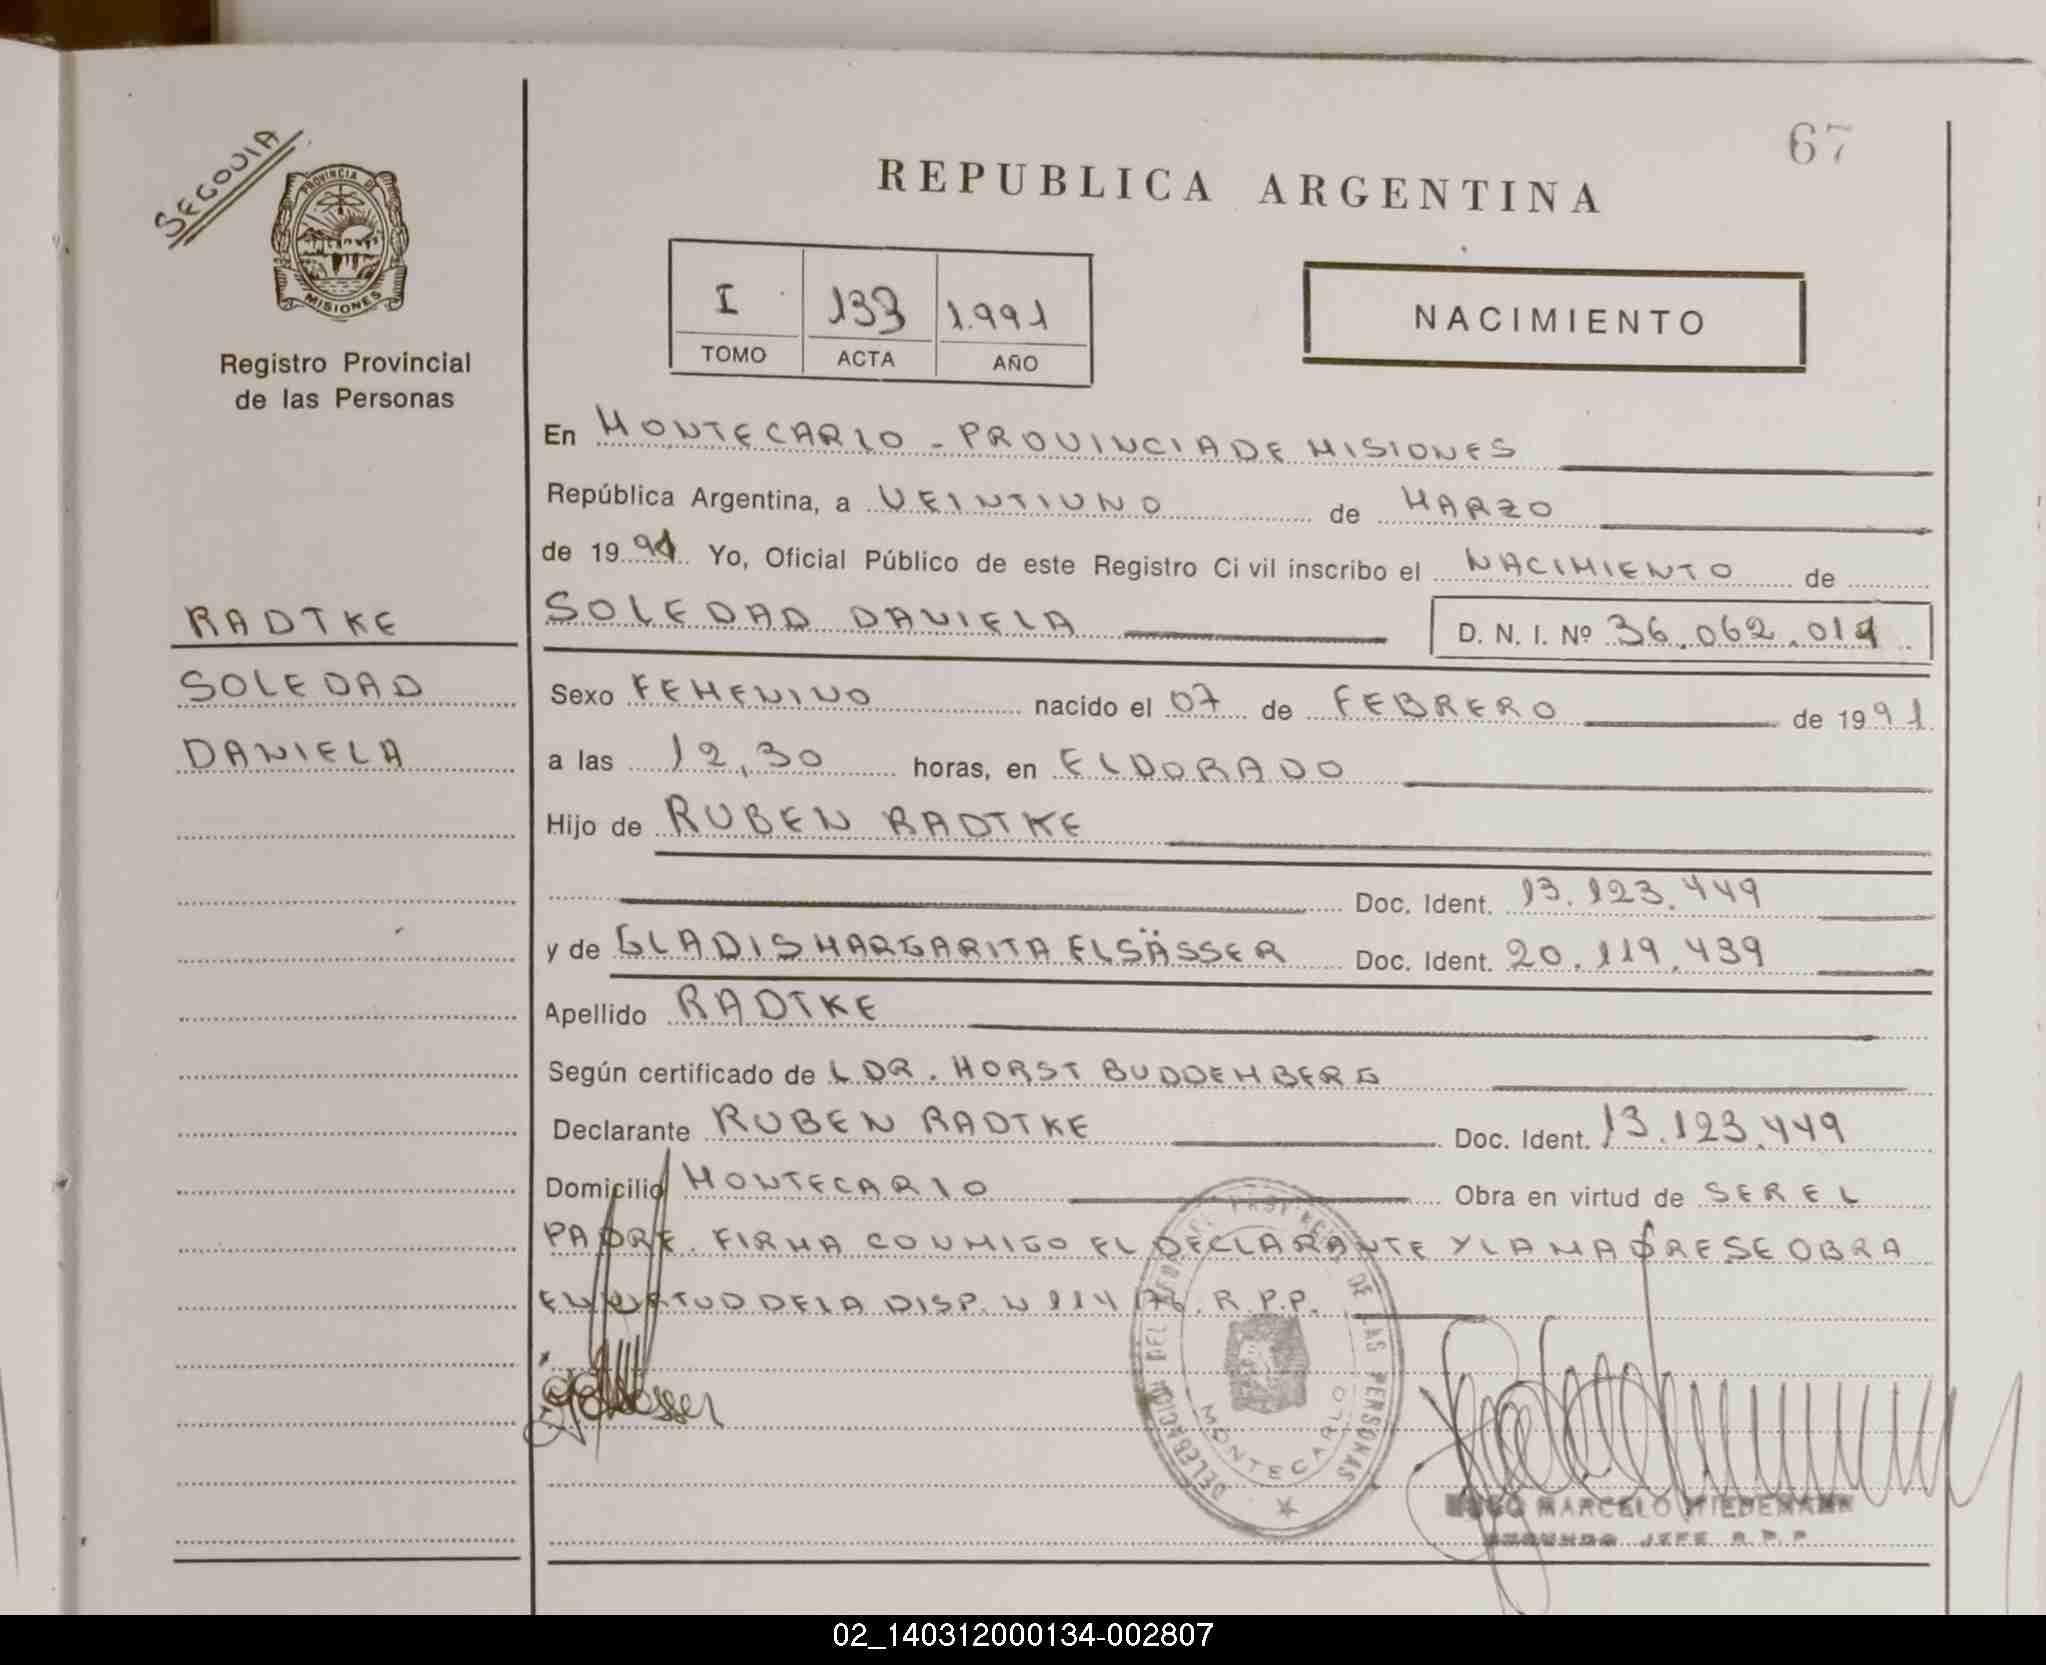 67
SEGOVIA
PROVINCIA DE
MISIONES
Registro Provincial
de las Personas
REPUBLICA ARGENTINA
I 133 1.991
TOMO ACTA AÑO
NACIMIENTO
En MONTECARLO - PROVINCIA DE MISIONES
República Argentina, a VEINTIUNO de MARZO
de 1991 Yo, Oficial Público de este Registro Ci vil inscribo el NACIMIENTO de
RADTKE
SOLEDAD
DANIELA
SOLEDAD DANIELA D. N. I. Nº 36.062.014
Sexo FEMENINO nacido el 07 de FEBRERO de 1991
a las 12,30 horas, en ELDORADO
Hijo de RUBEN RADTKE
Doc. Ident. 13.123.449
y de GLADIS MARGARITA ELSÄSSER Doc. Ident. 20.119.439
Apellido RADTKE
Según certificado de L DR. HORST BUDDEMBERG
Declarante RUBEN RADTKE Doc. Ident. 13.123.449
Domicilio MONTECARLO Obra en virtud de SER EL
PADRE. FIRMA CONMIGO EL DECLARANTE Y LA MADRE SE OBRA
EN VIRTUD DE LA DISP. N 114/76. R.P.P.
DELEGACION DEL PROVINCIAL DE LAS PERSONAS
MONTECARLO
MARCELO WIEDEMANN
SEGUNDO JEFE R.P.P
02_140312000134-002807